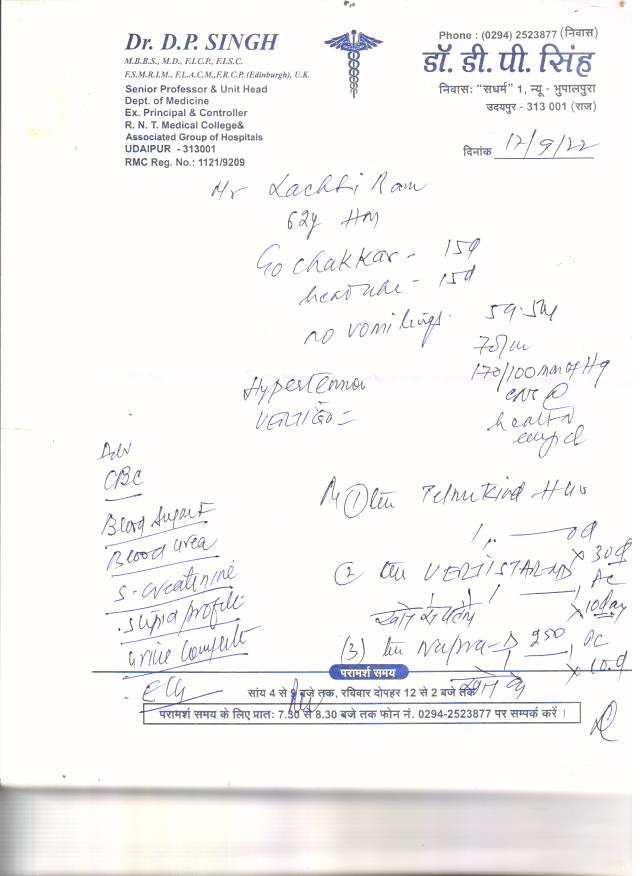 Dr. D.P. SINGH
M.B.B.S., M.D., F.I.C.P., F.I.S.C.
F.S.M.R.I.M., F.L.A.C.M., F.R.C.P. (Edinburgh), U.K.
Senior Professor & Unit Head
Dept. of Medicine
Ex. Principal & Controller
R. N. T. Medical College&
Associated Group of Hospitals
UDAIPUR - 313001
RMC Reg. No.: 1121/9209
Phone : (0294) 2523877 (निवास)
डॉ. डी. पी. सिंह
निवास: "सधर्म" 1, न्यू - भुपालपुरा
उदयपुर - 313 001 (राज)
दिनांक 12/9/22
Mr Lachhi Ram
62y HM
C/o chakkar - 15d
headache - 15d
no vomitings.
78/m
170/100 mm of Hg
Hypertension
Adv
CBC
Blood Sugar F
Blood Urea
S. creatinine
Lipid profile
Urine Complete
ECG
(1)
(2) VERTISTAR
x 10 day
(3) Naprx-D 250
x 10 d
परामर्श समय
सांय 4 से बजे तक, रविवार दोपहर 12 से 2 बजे तक
परामर्श समय के लिए प्रातः 7.30 से 8.30 बजे तक फोन नं. 0294-2523877 पर सम्पर्क करें ।